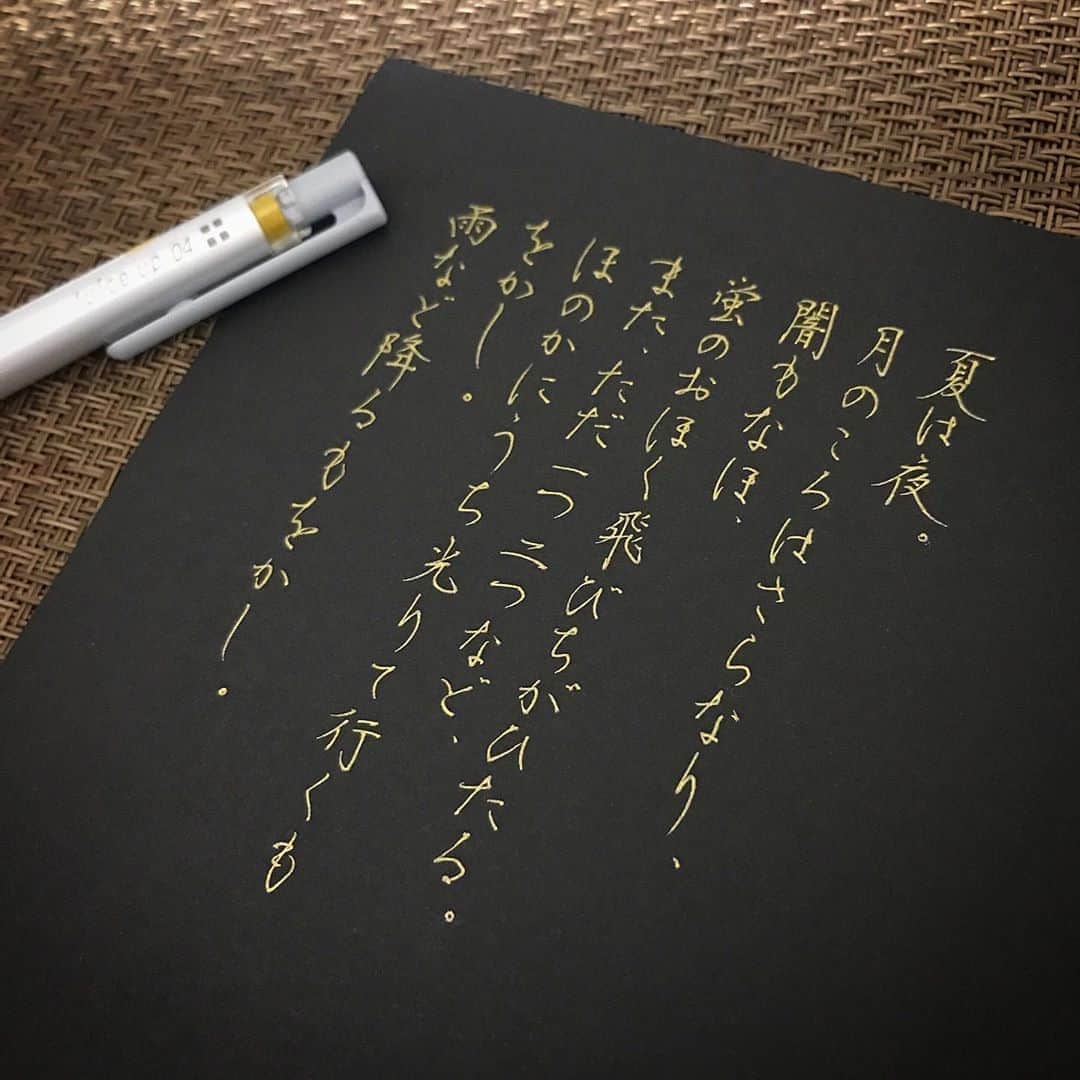 夏は夜。
月のころはさらなり、
闇もなほ、
蛍のおほく飛びちがひたる。
また、ただ一つ二つなど、
ほのかにうち光りて行くも
をかし。
雨など降るもをかし。
juice up 04